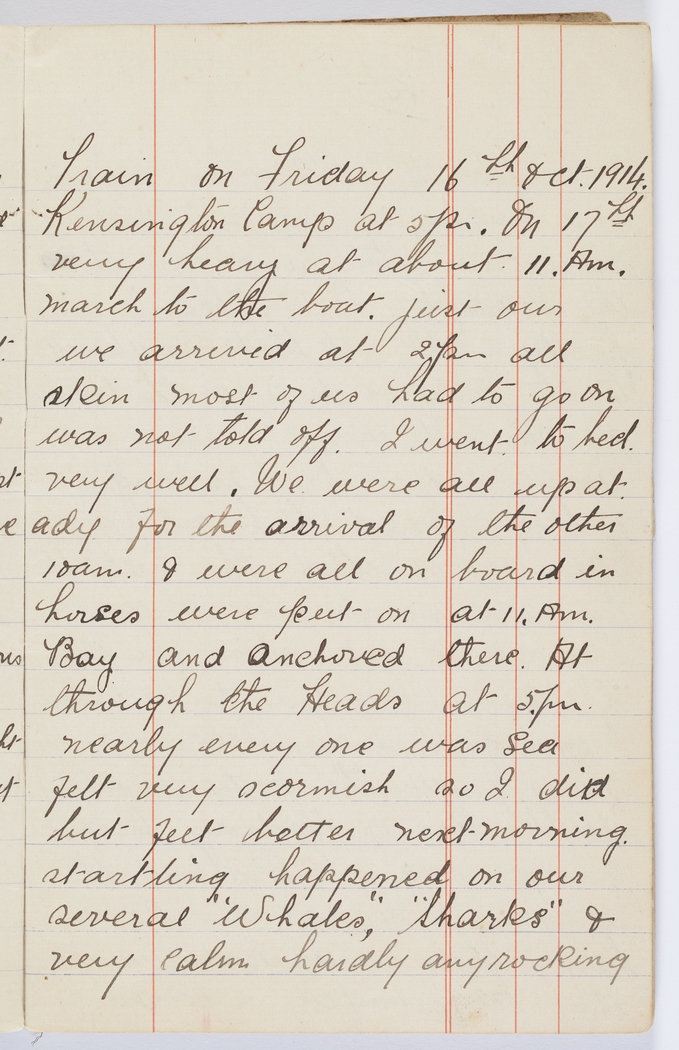 Train on Friday 16th Oct. 1914.
Kensington Camp at 5pm. On 17th
very heavy at about 11. Am.
march to the boat. just our
we arrived at 2pm all
skin most of us had to go on
was not told off. I went to bed.
very well. We were all up at.
ady for the arrival of the other
10am. & were all on board in
horses were put on at 11. Am.
Bay and anchored there. At
through the Heads at 5.pm.
nearly every one was Sea
felt very scormish so I did
but feet better next morning.
startling happened on our
several "Whales", "Sharks" &
very calm hardly any rocking